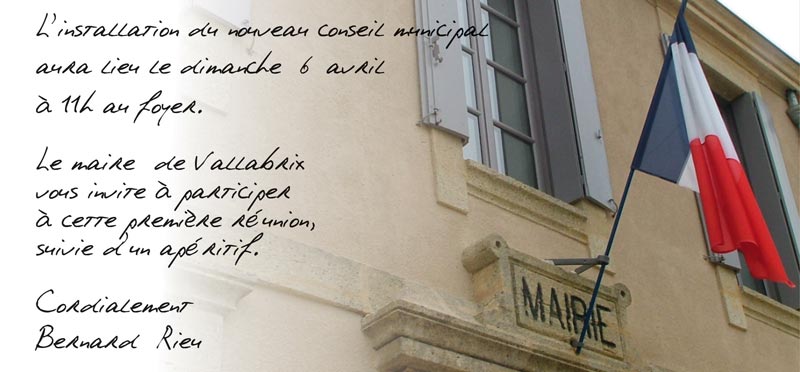 L'installation du nouveau conseil municipal
aura lieu le dimanche 6 avril
à 11h au foyer.
Le maire de Vallabrix
vous invite à participer
à cette première réunion,
suivie d'un apéritif.
Cordialement
Bernard Rieu
MAIRIE